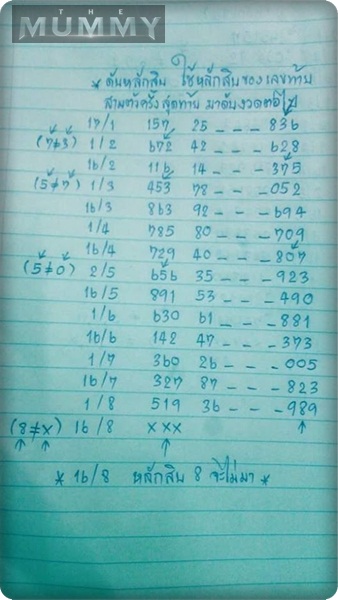 THE
MUMMY
* ดับหลักสิบ ใช้หลักสิบของเลขท้าย
สามตัวครั้งสุดท้าย มาดับงวดต่อไป
17/1 157 25 - - - 836
(7≠3) 1/2 672 42 - - - 628
16/2 116 14 - - - 375
(5≠7) 1/3 453 78 - - - 052
16/3 863 92 - - - 694
1/4 785 80 - - - 709
16/4 729 40 - - - 807
(5≠0) 2/5 656 35 - - - 923
16/5 891 53 - - - 490
1/6 630 61 - - - 881
16/6 142 47 - - - 373
1/7 360 26 - - - 005
16/7 327 87 - - - 823
1/8 519 36 - - - 989
(8≠x) 16/8 xxx
* 16/8 หลักสิบ 8 จะไม่มา *